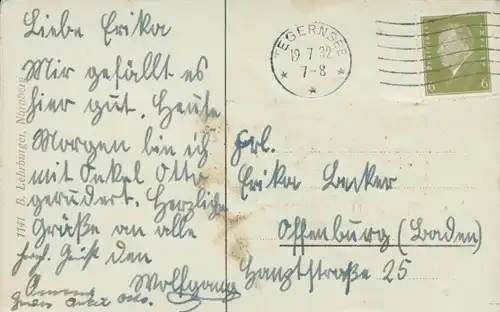 Liebe Erika
Mir gefällt es
hier gut. Heute
Morgen bin ich
mit Onkel Otto
gerudert. Herzliche
Grüße an alle
Wolfgang
1141 B. Lehrburger, Nürnberg
TEGERNSEE
19 7 32
7-8
6 6
Frl.
Erika Becker
Offenburg (Baden)
Hauptstraße 25